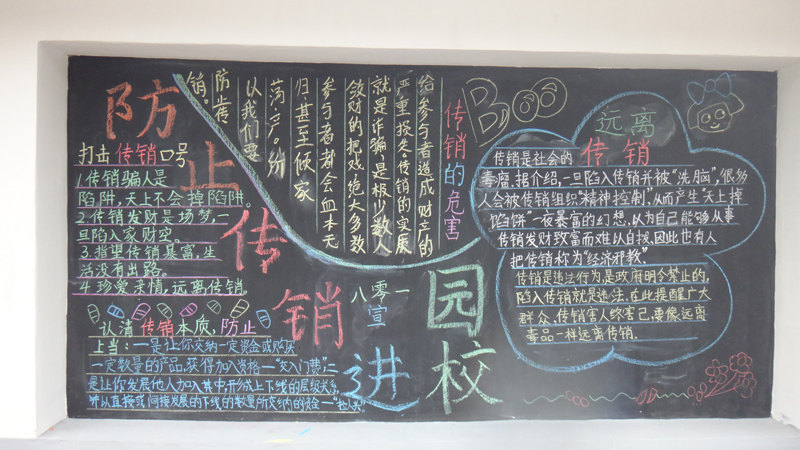 防止传销进校园
打击传销口号
1.传销骗人是
陷阱,天上不会掉陷阱。
2.传销发财是场梦,一
旦陷入家财空。
3.指望传销暴富,生
活没有出路。
4.珍爱亲情,远离传销。
认清传销本质,防止
上当:一是让你交纳一定资金或购买
一定数量的产品,获得加入资格—"交入门费";二
是让你发展他人加入其中,形成上下线的层级关系
传销的危害
给参与者造成财产的
严重损失。传销的实质
就是诈骗,是极少数人
敛财的把戏,绝大多数
参与者都会血本无
归,甚至倾家
荡产。所
以我们要
防止传
销。
八零一
宣
Boo
远离
传销
传销是社会的
毒瘤,据介绍,一旦陷入传销并被"洗脑",很多
人会被传销组织"精神控制",从而产生"天上掉
馅饼"一夜暴富的幻想,以为自己能够从事
传销发财致富而难以自拔,因此也有人
把传销称为"经济邪教"
传销是违法行为,是政府明令禁止的,
陷入传销就是违法,在此提醒广大
群众,传销害人终害己,要像远离
毒品一样远离传销.